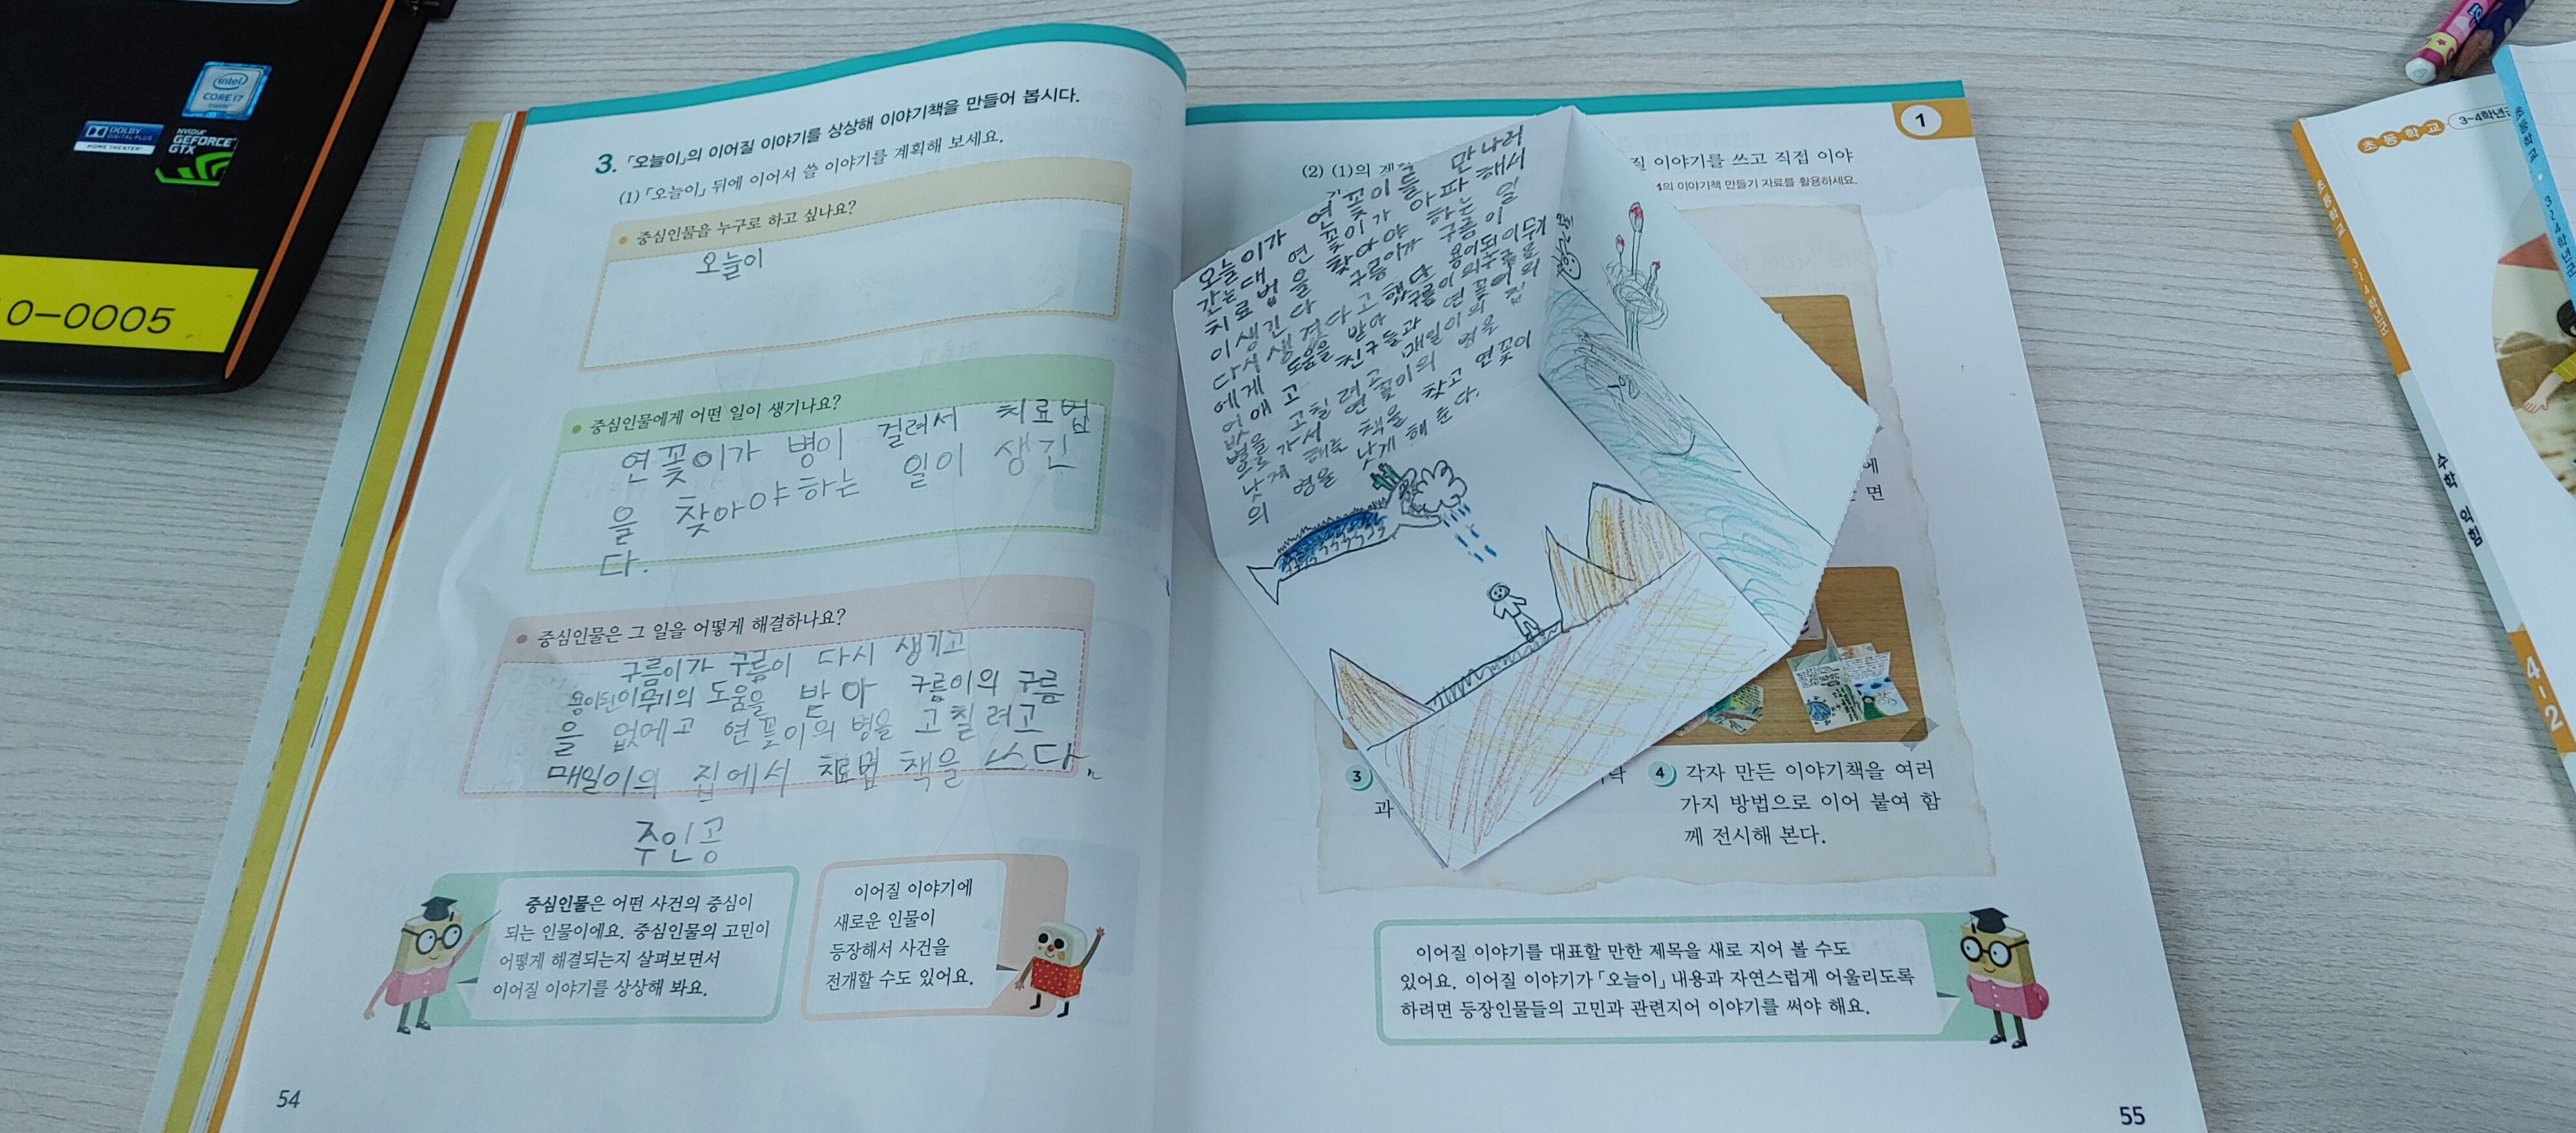 intel
CORE i7
inside
DOLBY
DIGITAL PLUS
HOME THEATER
NVIDIA
GEFORCE
GTX
0-0005
3. 「오늘이」의 이어질 이야기를 상상해 이야기책을 만들어 봅시다.
(1) 「오늘이」 뒤에 이어서 쓸 이야기를 계획해 보세요.
중심인물을 누구로 하고 싶나요?
오늘이
중심인물에게 어떤 일이 생기나요?
연꽃이가 병이 걸려서 치료법
을 찾아야하는 일이 생긴
다.
중심인물은 그 일을 어떻게 해결하나요?
구름이가 구름이 다시 생기고
용이된이무기의 도움을 받아 구름이의 구름
을 없에고 연꽃이의 병을 고칠려고
매일이의 집에서 치료법 책을 쓰다
주인공
중심인물은 어떤 사건의 중심이
되는 인물이에요. 중심인물의 고민이
어떻게 해결되는지 살펴보면서
이어질 이야기를 상상해 봐요.
이어질 이야기에
새로운 인물이
등장해서 사건을
전개할 수도 있어요.
54
1
(2) (1)의 계획
질 이야기를 쓰고 직접 이야
의 이야기책 만들기 자료를 활용하세요.
오늘이가 연꽃이를 만나러
간는대 연꽃이가 아파해서
치료법을 찾아야 하는 일
이생긴다 구름이가 구름이
다시 생겼다고 했던 용이되이무기
에게 도움을 받아 구름이의구름을
없애고 친구들과 연꽃이의
병을 고칠려고 매일이의 집
으로 가서 연꽃이의 병을
낫게 해줄 책을 찾고 연꽃이
의 병을 낫게 해준다.
에
면
3
과
4 각자 만든 이야기책을 여러
가지 방법으로 이어 붙여 함
께 전시해 본다.
이어질 이야기를 대표할 만한 제목을 새로 지어 볼 수도
있어요. 이어질 이야기가 「오늘이」 내용과 자연스럽게 어울리도록
하려면 등장인물들의 고민과 관련지어 이야기를 써야 해요.
55
초등학교 3~4학년군
초등학교 3~4학년군
수학 익힘
4-2
초등학교 · 3~4학년군